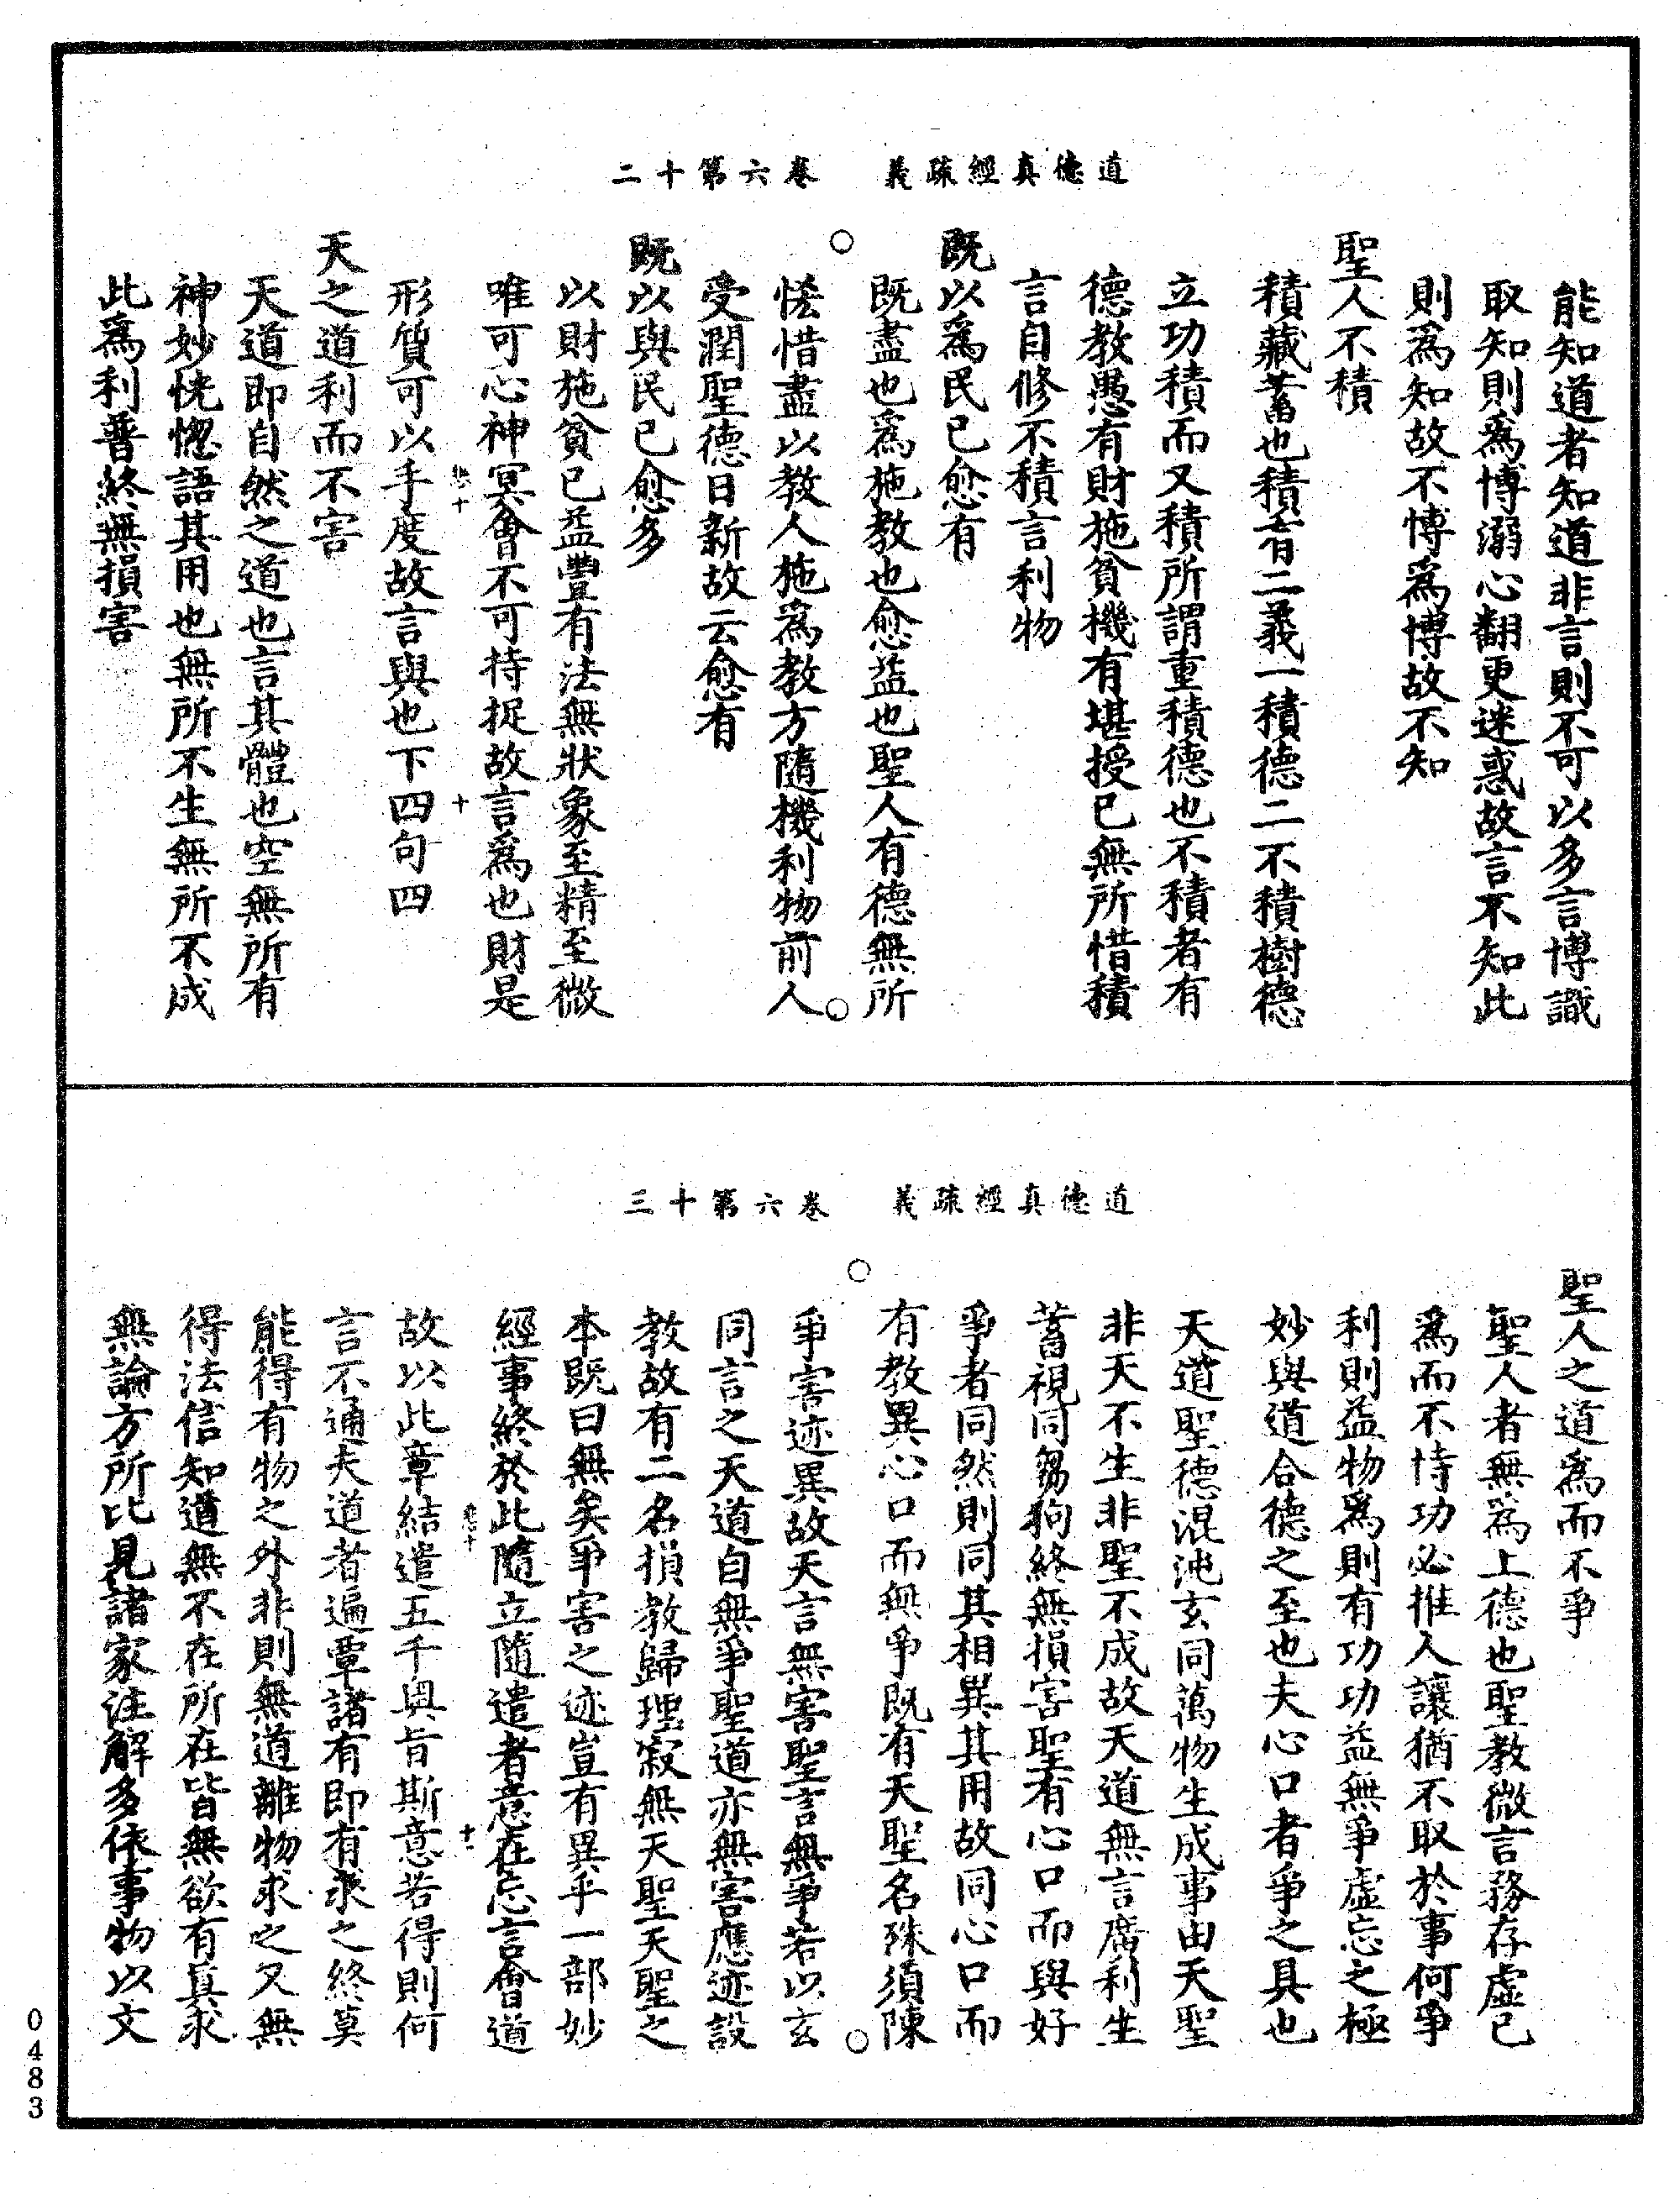 道德真經疏義　卷六第十二
能知道者知道非言則不可以多言博識
取知則爲博溺心翻更迷惑故言不知此
則爲知故不博爲博故不知
聖人不積
積藏蓄也積有二義一積德二不積樹德
立功積而又積所謂重積德也不積者有
德教愚有財施貧機有堪授已無所惜積
言自修不積言利物
既以爲民已愈有
既盡也爲施教也愈益也聖人有德無所
悋惜盡以教人施爲教方隨機利物前人
受潤聖德日新故云愈有
既以與民已愈多
以財施貧已益豐有法無狀象至精至微
唯可心神冥會不可持捉故言爲也財是
形質可以手度故言與也下四句四
天之道利而不害
天道即自然之道也言其體也空無所有
神妙恍惚語其用也無所不生無所不成
此爲利普終無損害
道德真經疏義　卷六第十三
聖人之道爲而不爭
聖人者無爲上德也聖教微言務存虛已
爲而不恃功必推人讓猶不取於事何爭
利則益物爲則有功功益無爭虛忘之極
妙與道合德之至也夫心口者爭之具也
天道聖德混沌玄同萬物生成事由天聖
非天不生非聖不成故天道無言廣利生
蓄視同芻狗終無損害聖有心口而與好
爭者同然則同其相異其用故同心口而
有教異心口而無爭既有天聖名殊須陳
爭害迹異故天言無害聖言無爭若以玄
同言之天道自無爭聖道亦無害應迹設
教故有二名損教歸理寂無天聖天聖之
本既曰無矣爭害之迹豈有異乎一部妙
經事終於此隨立隨遣者意在忘言會道
故以此章結遣五千奥旨斯意若得則何
言不通夫道者遍覃諸有即有求之終莫
能得有物之外非則無道離物求之又無
得法信知道無不在所在皆無欲有真求
無論方所比見諸家注解多依事物以文
0483